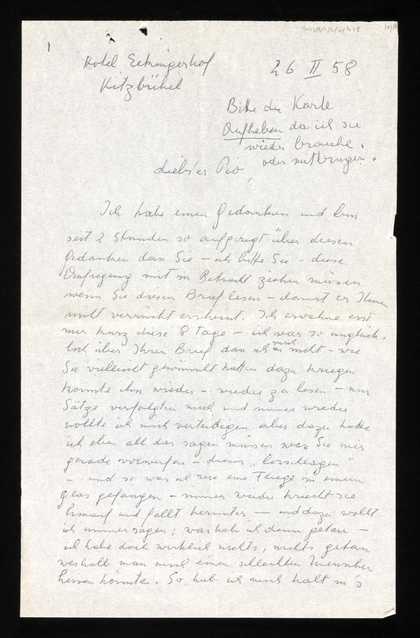 1
Hotel Eckingerhof
Kitzbühel
26 II 58
Bitte die Karte
Aufheben da ich sie
wieder brauche.
oder mitbringen.
Liebster Pio,
Ich habe einen Gedanken und bin
seit 2 Stunden so aufgeregt über diesen
Gedanken dass Sie – ich bitte Sie – diese
Aufregung mit in Betracht ziehen müssen
wenn Sie diesen Brief lesen – damit er Ihnen
nicht verrückt erscheint. Ich erwähne erst
nur kurz diese 8 Tage – ich war so unglück-
lich über Ihren Brief dass ich mich nicht – wie
Sie vielleicht gewünscht hätten dazu kriegen
konnte ihn wieder – wieder zu lesen – nur
Sätze verfolgten mich und immer wieder
wollte ich mich verteidigen aber dazu hätte
ich eben all das sagen müssen was Sie mir
gerade vorwerfen – dieses „losschlagen"
– und so war ich wie eine Fliege in einem
Glas gefangen – immer wieder kriecht sie
hinauf und fällt herunter – und dazu wollt
ich immer sagen, was hab ich denn getan –
ich habe doch wirklich nichts, nichts getan
weshalb man mich einen schlechten Menschen
heissen könnte. So hab ich mich halt in's